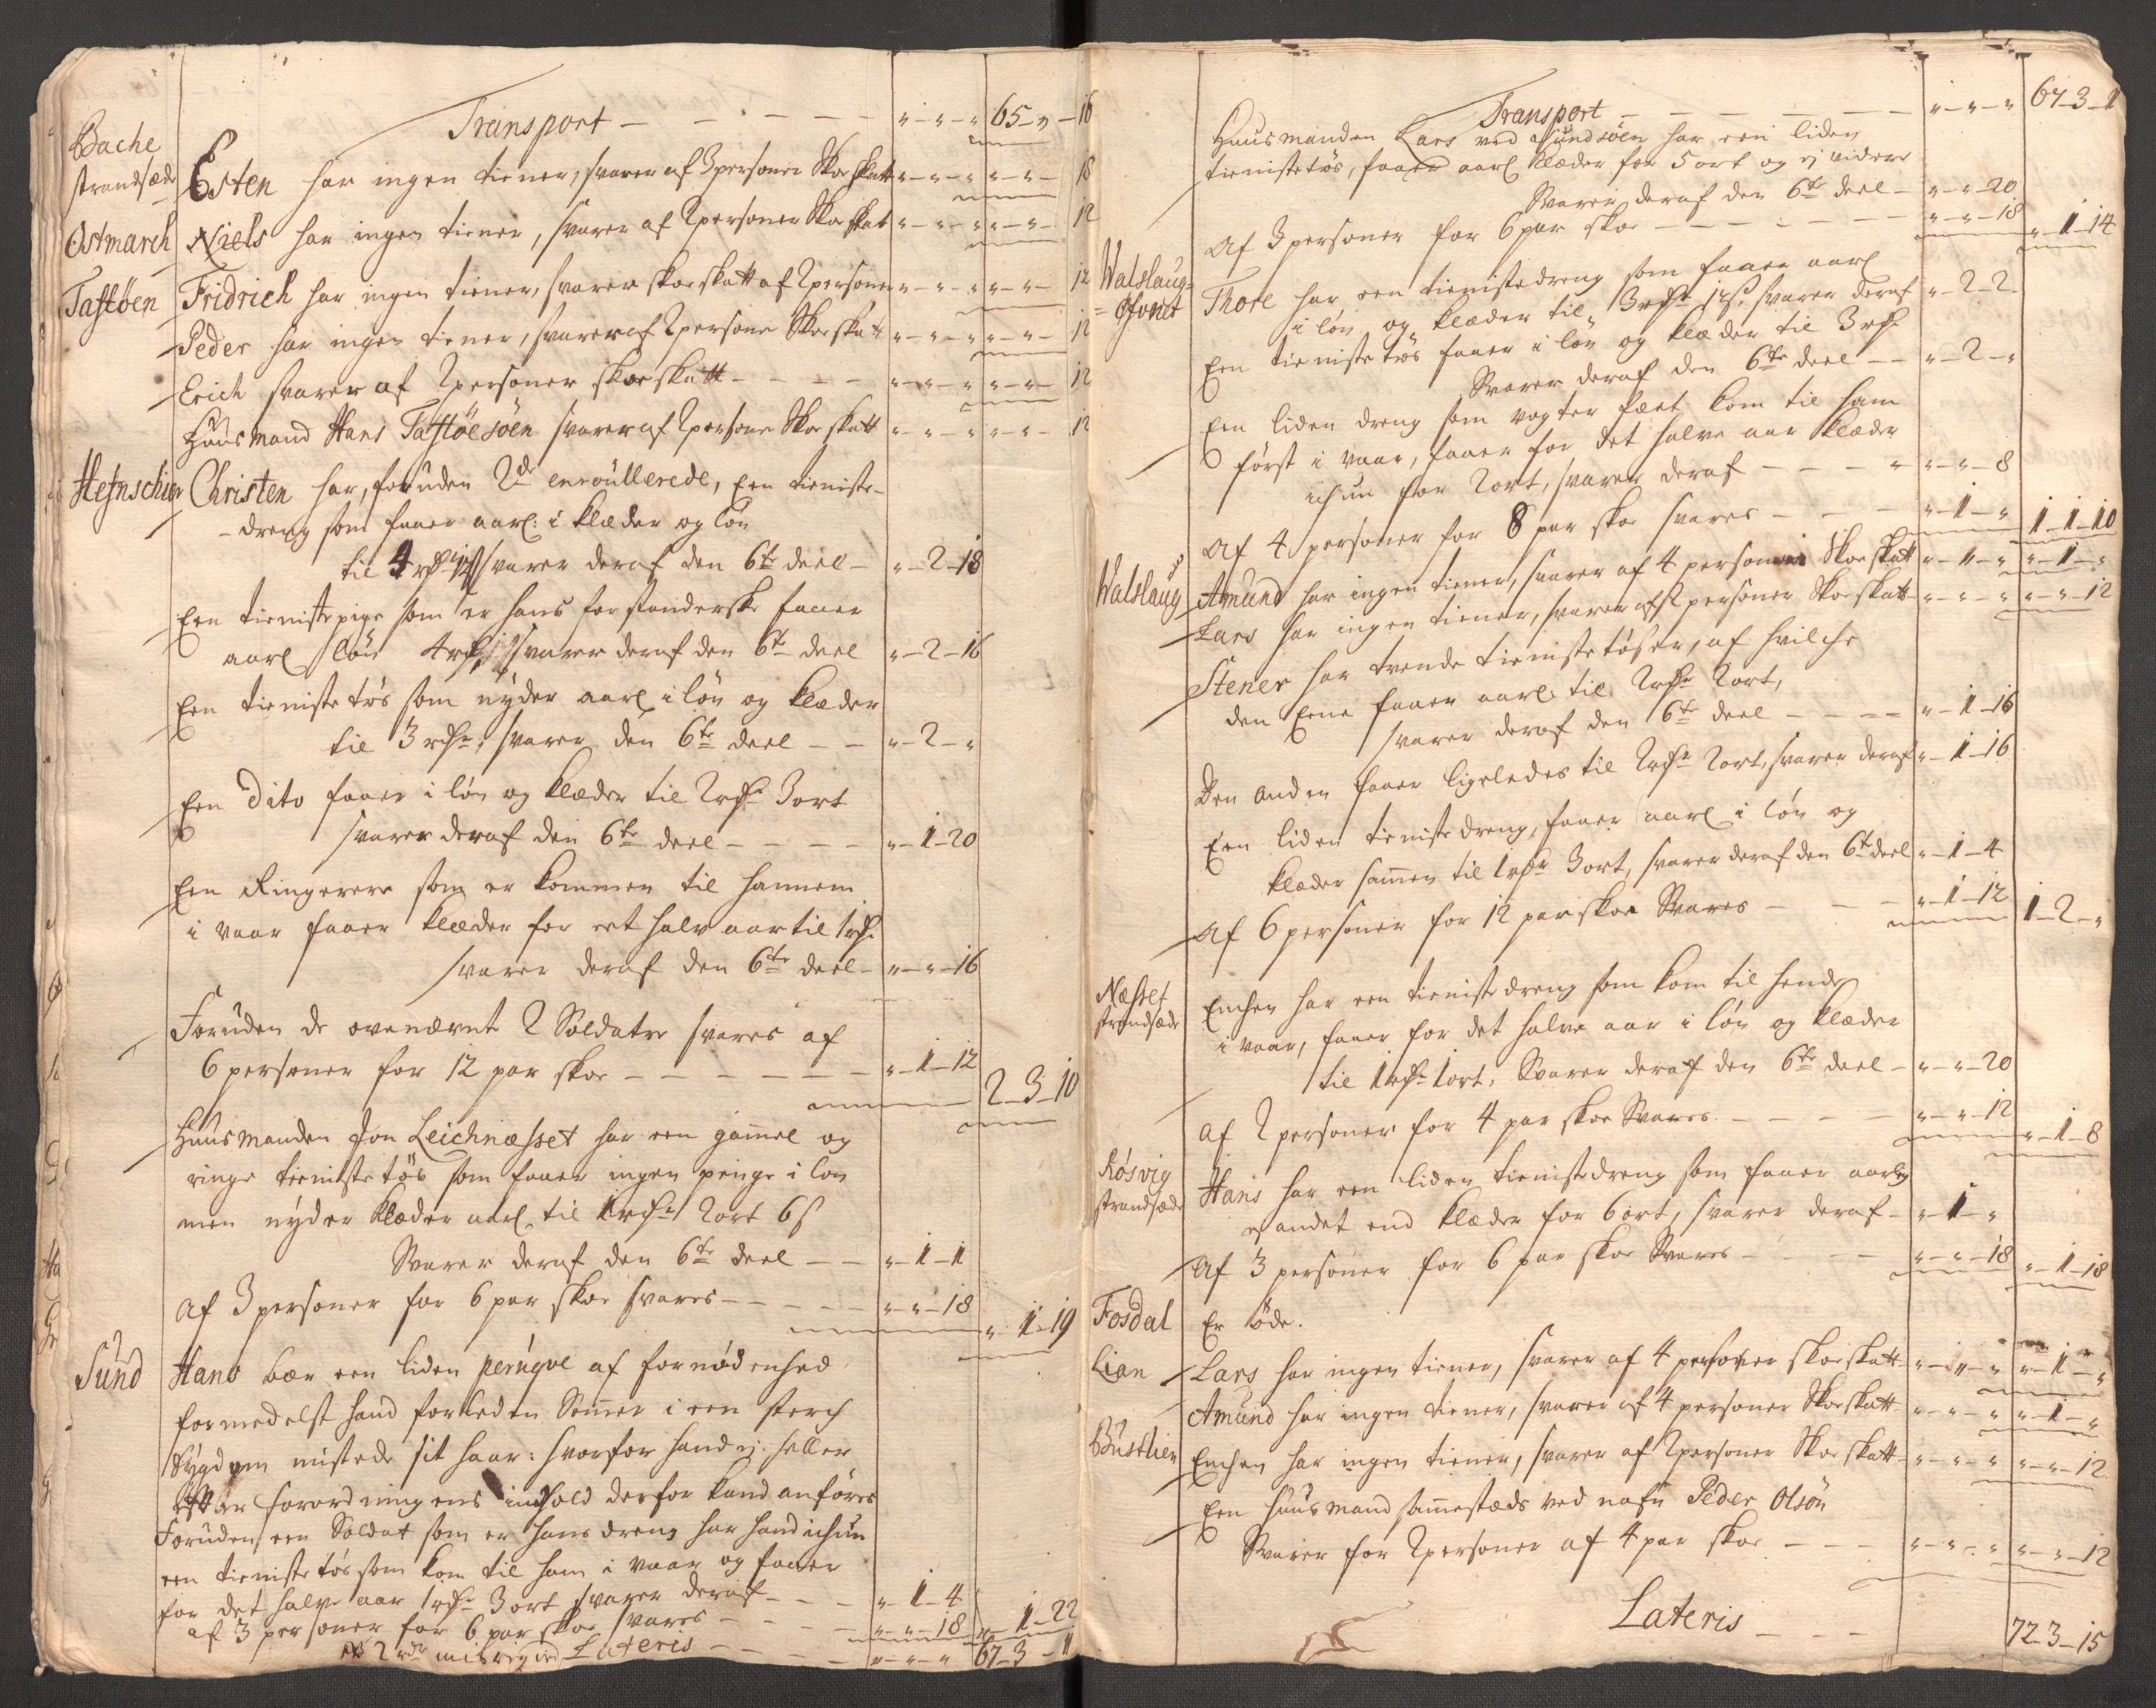 Transport — — — — — „ - „ - „ 65 - „ - 16
Bache
strandsæde Esten har ingen tiener, svarer af 3 personer Skoe skatt „ - „ - „ „ - „ - 18
Ostmarch Niels har ingen tiener, svarer af 2 personer Skoe skat „ - „ - „ „ - „ - 12
Taftöen Fridrich har ingen tiener, svarer skoeskatt af 2 personer „ - „ - „ „ - „ - 12
Peder har ingen tiener, svarer af 2 persone Skoeskat „ - „ - „ „ - „ - 12
Erich svarer af 2 personer skoeskatt — — — „ - „ - „ „ - „ - 12
Huusmand Hans Taftöesöen svarer af 2 persone Skoe skatt „ - „ - „ „ - „ - 12
Hefnschier Christen har, foruden 2de enroullerede, Een tieniste-
- dreng som faaer aarl: i klæder og lön
til 4 rdr svarer deraf den 6te deel — „ - 2 - 18
Een tienistepige som er hans forstanderske faaer
aarl lön 4 rdr svarer deraf den 6te deel „ - 2 - 16
Een tieniste tös som nyder aarl i lön og klæder
til 3 rdr, svarer den 6te deel — — „ - 2 - „
Een Dito faaer i lön og klæder til 2 rdr 3 ort
svarer deraf den 6te deel — — — — „ - 1 - 20
Een Ringerere som er kommen til hannem
i vaar faaer klæder for eet halv aar til 1 rdr
svarer deraf den 6te deel — „ - „ - 16
Foruden de ovenævnte 2 Soldater svares af
6 personer for 12 par skoe — — — — — — „ - 1 - 12
2 - 3 - 10
Huusmanden Jon Leichnæsset har een gamel og
ringe tieniste tös som faaer ingen penge i lön
men nyder klæder aarl til 1 rdr 2 ort 6 s
Svarer deraf den 6te deel — — „ - 1 - 1
Af 3 personer for 6 par skoe svares — — — — „ - „ - 18
„ - 1 - 19
Sund Hans bær een liden perugve af fornödenhed
formedelst hand forleden Somer i een sterch
Sygdom mistede sit haar: hvorfor hand ej heller
efter forordningens indhold derfor kand anföres
Foruden een Soldat som er hans dreng har hand ichun
een tieniste tös som kom til ham i vaar og faaer
for det halve aar 1 rdr 3 ort svarer deraf — — — „ - 1 - 4
af 3 personer for 6 par skoe svares — — „ - „ - 18 „ - 1 - 22
Lateris — — „ - „ - „ 67 - 3 - 11
Transport — — — — — — „ - „ - „ 67 - 3 - 1
Huusmanden Lars ved Sundsöen har een liden
tienistetös, faaer aarl klæder for 5 ort og ej videre
Svarer deraf den 6te deel — „ - „ - 20
Af 3 personer for 6 par skoe — — — — — „ - „ - 18
„ - 1 - 14
Walslaug-
= Ofvret Thore har een tienistedreng som faaer aarl
i lön og klæder til 3 rdr svarer deraf „ - 2 - 2
Een tieniste tös faaer i lön og klæder til 3 rdr
Svarer deraf den 6te deel — — „ - 2 - „
Een liden dreng som vogter fæet kom til ham
först i vaar, faaer for det halve aar klæder
ichun for 2 ort, svarer deraf — — — „ - „ - 8
Af 4 personer for 8 par skoe svares — — — „ - 1 - „ 1 - 1 - 10
Walslaug Amund har ingen tiener, svarer af 4 personer Skoeskatt „ - „ - „ „ - 1 - „
Lars har ingen tiener, svarer af 2 personer Skoeskatt „ - „ - „ „ - „ - 12
Stener har tvende tienistetöser, af hvilche
den Eene faaer aarl til 2 rdr 2 ort,
svarer deraf den 6te deel — — — — „ - 1 - 16
Den anden faaer ligeledes til 2 rdr 2 ort, svarer deraf „ - 1 - 16
Een liden tieniste dreng, faaer aarl i lön og
klæder samen til 1 rdr 3 ort, svarer deraf den 6te deel „ - 1 - 4
Af 6 personer for 12 par skoe Svares — — — „ - 1 - 12
1 - 2 - „
Næsset
strandsæde Enchen har een tienistedreng som kom til hende
i vaar, faaer for det halve aar i lön og klæder
til 1 rdr 1 ort. Svarer deraf den 6te deel — „ - „ - 20
Af 2 personer for 4 par skoe Svares — — — — „ - „ - 12
„ - 1 - 8
Rösvig
strandsæde Hans har een liden tienistedreng som faaer aarlig
ej andet end klæder for 6 ort, svarer deraf — „ - 1 - „
Af 3 personer for 6 par skoe Svares — — — — „ - „ - 18
„ - 1 - 18
Fosdal Er öde.
Lian Lars har ingen tiener, svarer af 4 personer skoeskatt „ - „ - „ „ - 1 - „
Amund har ingen tiener, svarer af 4 personer Skoeskatt „ - „ - „ „ - 1 - „
Bustlien Enchen har ingen tiener, svarer af 2 personer Skoe skatt „ - „ - „ „ - „ - 12
Een huusmand samestæds ved nafn Peder Olsön
Svarer for 2 personer af 4 par skoe — — — „ - „ - „ „ - „ - 12
Lateris — — — 72 - 3 - 15